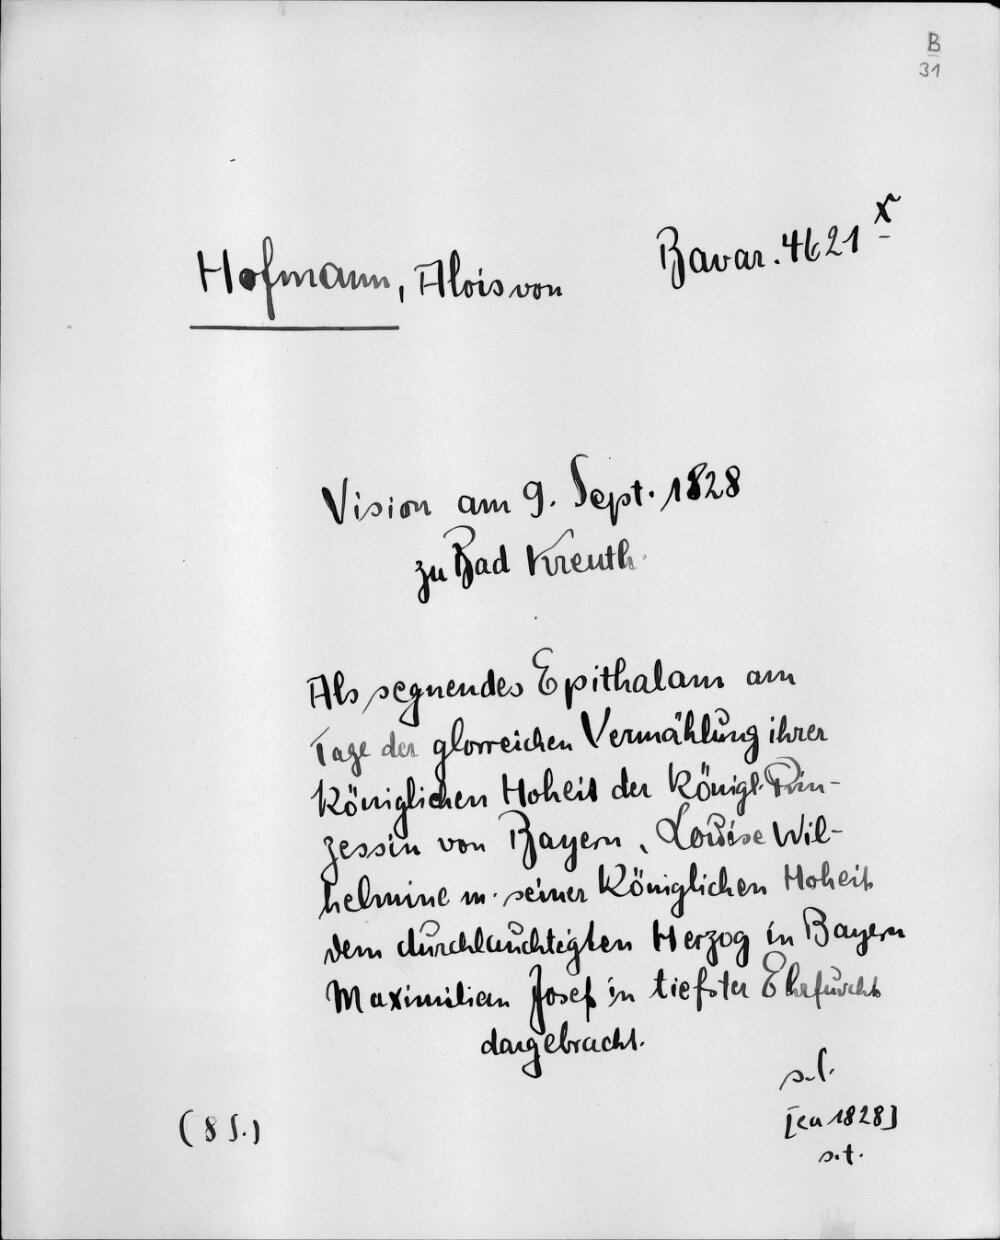 B
31
Hofmann, Alois von Bavar. 4621 x
Vision am 9. Sept. 1828
zu Bad Kreuth.
Als segnendes Epithalam am
Tage der glorreichen Vermählung ihrer
Königlichen Hoheit der Königl. Prin-
zessin von Bayern, Louise Wil-
helmine m. seiner Königlichen Hoheit
dem durchlauchtigsten Herzog in Bayern
Maximilian Josef in tiefster Ehrfurcht
dargebracht.
s.l.
(8 S.) [ca 1828]
s.t.